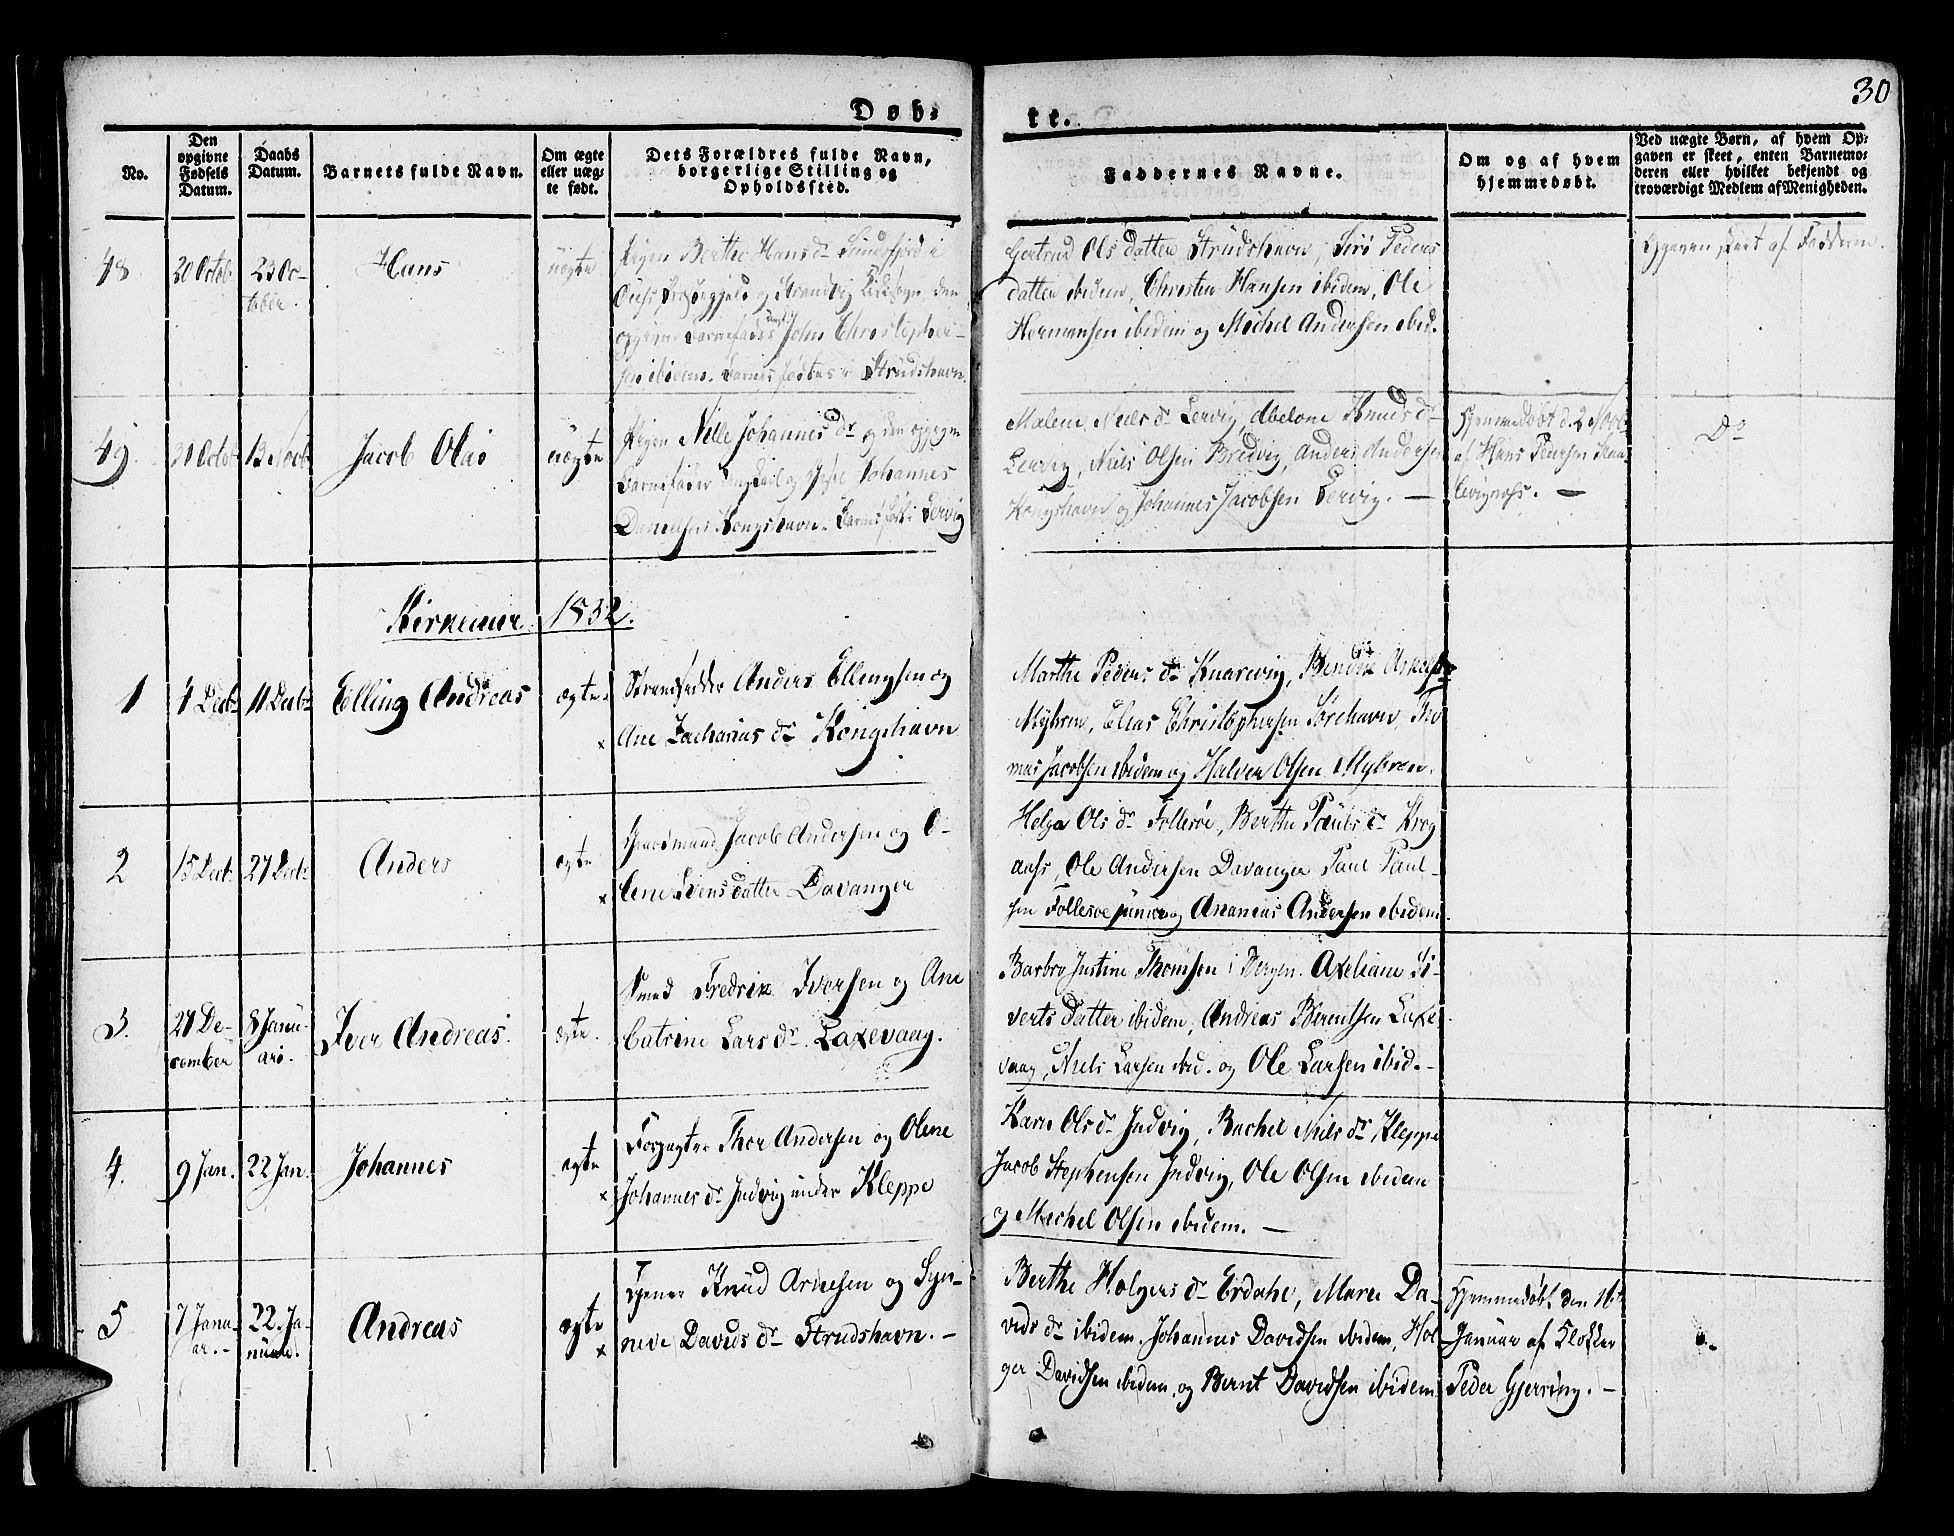 30
Døb-
te.
No.
Den
opgivne
Fødsels
Datum.
Daabs
Datum.
Barnets fulde Navn.
Om ægte
eller uæg-
te født.
Dets Forældres fulde Navn,
borgerlige Stilling og
Opholdssted.
Faddernes Navne.
Om og af hvem
hjemmedøbt.
Ved uægte Børn, af hvem Op-
gaven er skeet, enten Barnemo-
deren eller hvilket bekjendt og
troværdigt Medlem af Menigheden.
48
20 Octob.
23 Oc-
tober.
Hans
uægte
Pigen Berthe Hans dr Sundfjord i
Præstegjeld og Strandvig Kirkesogn, den
opgivne Barnefader Ungkl. John Christopher-
sen ibidem. Barnet fødtes i Strudshavn.
Gertrud Ols datter Strudshavn, Siri Peders
datter ibidem, Christen Hansen ibidem, Ole
Hermansen ibidem og Michel Andersen ibid.
Opgaven skeet af Fadderne.
49
31 Octob.
13 Novb.
Jacob Olai
uægte
Pigen Nille Johannes dr og den opgivne
Barnefader Ungkarl Johannes
Danielsen Kongshavn. Barnet født i Lervig
Malene Niels dr Lervig, Abelone Knuds dr
Lervig, Niels Olsen Bredvig, Anders Andersen
Kongshavn og Johannes Jacobsen Lervig. —
Hjemmedøbt d. 2 Novb.
af Hans Pedersen
—
Do
Kirkeaar 1832.
1
4 Decbr
11 Decbr
Elling Andreas
ægte
Strandsidder Anders Ellingsen og
Ane Zacharias dr Kongshavn
Marthe Peders dr Knarrevig, Bendix
Myhren, Elias Christophersen Sørehavn, Tho
mas Jacobsen ibidem og Halvor Olsen Myhren.
2
15 Decbr
27 Decbr
Anders
ægte
Gaardmand Jacob Andersen og O-
lene Svens datter Davanger
Helga Ols dr Follesøe, Berthe Pouls dr Krog
aas, Ole Andersen Davanger Paul Paul-
sen Follesøe junior og Ananias Andersen ibidem.
3.
27 De-
cember
8 Janu-
ari.
Iver Andreas.
ægte.
Smed Fredrik Iversen og Ane
Catrine Lars dr Laxevaag.
Barbro Justine Thomsen i Bergen. Axeliane Si-
verts datter ibidem, Andreas Berentsen Laxe
vaag, Niels Larsen ibid. og Ole Larsen ibid.-
4.
9 Jan.
22 Jan.
Johannes
ægte
Forpagter Thor Andersen og Olene
Johannes dr Indvig under Kleppe
Karn Ols dr Indvig, Rachel Niels dr Kleppe
Jacob Stephensen Indvig, Ole Olsen ibidem
og Michel Olsen ibidem. —
5
7 Janu-
ar.-
22. Ja-
nuar.
Andreas
ægte
Tjener Knud Arnesen og Syn-
neve Davids dr Strudshavn. -
Berthe Holgers dr Erdahl, Maren Da-
vids dr ibidem. Johannes Davidsen ibidem, Hol-
ger Davidsen ibidem, og Bernt Davidsen ibidem
Hjemmedøbt den 16de
Januar af Klokker
Peder Gjerring. -